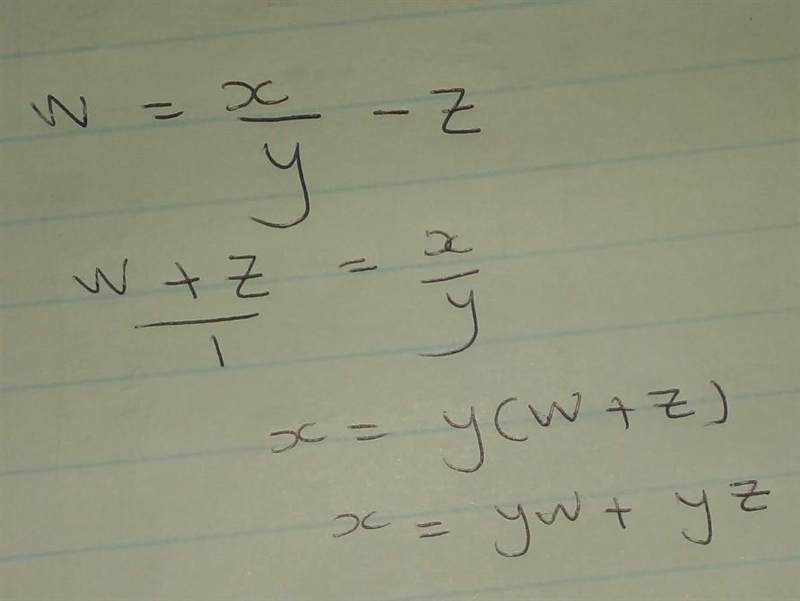 w = x/y - z
(w + z)/1 = x/y
x = y(w + z)
x = yw + yz